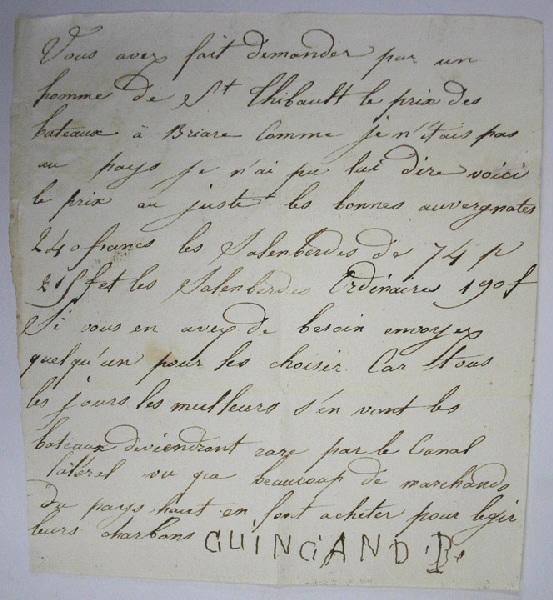 Vous avez fait demander par un
homme de St Thibault le prix des
bateaux à Briare Comme je n'étais pas
au pays je n'ai pu lui dire voici
le prix au juste les bonnes auvergnates
240 francs les Salenberdes de 74 p
215 f et les Salenberdes Ordinaires 190 f
Si vous en avez de besoin envoyez
quelqu'un pour les choisir. Car tous
les jours les meilleurs s'en vont les
bateaux deviendront rare par le Canal
latérel vu que beaucoup de marchands
du pays haut en font acheter pour
leurs charbons GUINGAND